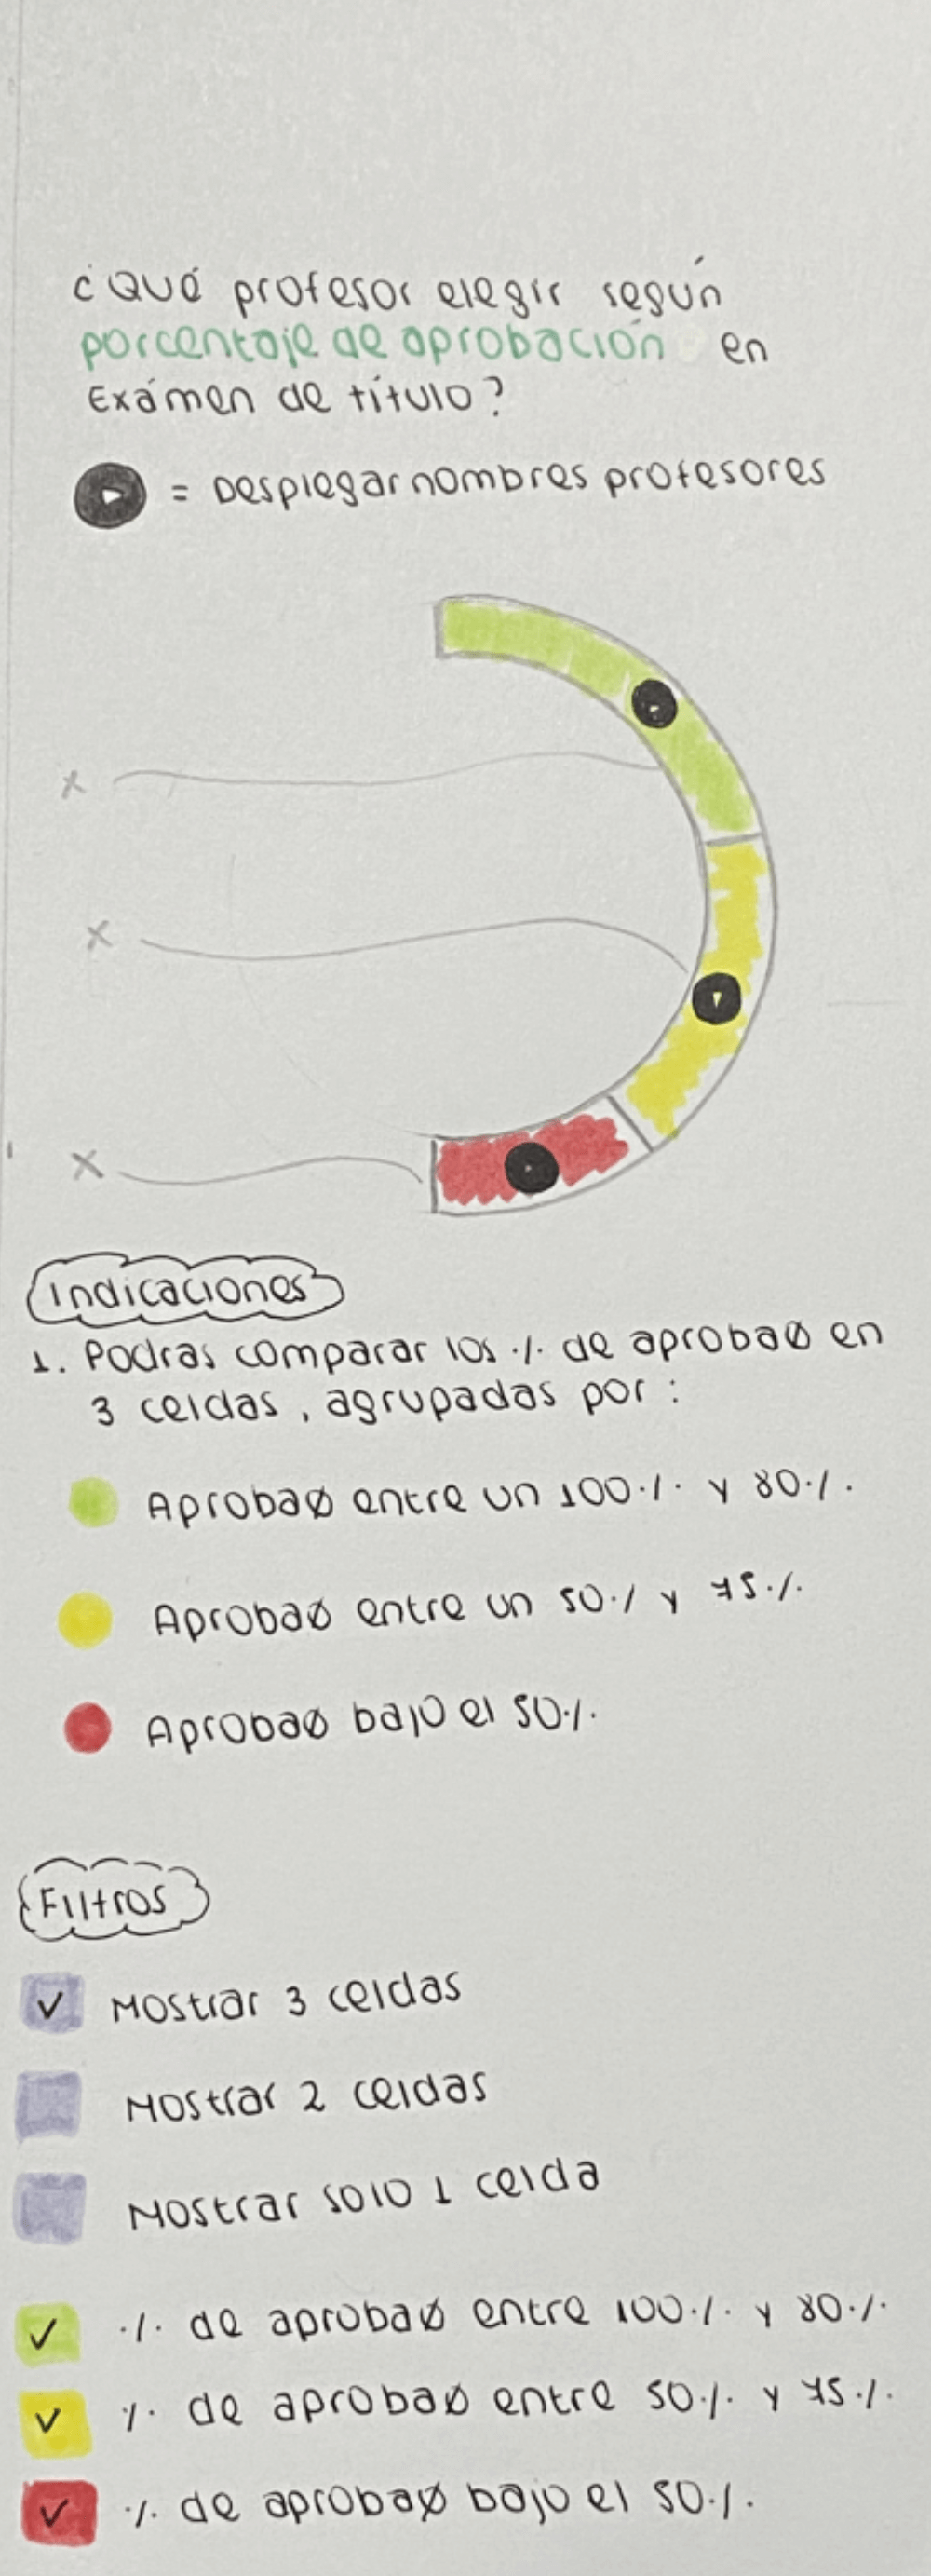 ¿Qué profesor elegir según
porcentaje de aprobación en
Exámen de título?
= Desplegar nombres profesores
x
x
x
Indicaciones
1. Podras comparar los % de aprobaø en
3 celdas, agrupadas por:
Aprobaø entre un 100% y 80%.
Aprobaø entre un 50% y 75%.
Aprobaø bajo el 50%.
Filtros
✓ Mostrar 3 celdas
Mostrar 2 celdas
Mostrar solo 1 celda
✓ % de aprobaø entre 100% y 80%.
✓ % de aprobaø entre 50% y 75%.
✓ % de aprobaø bajo el 50%.